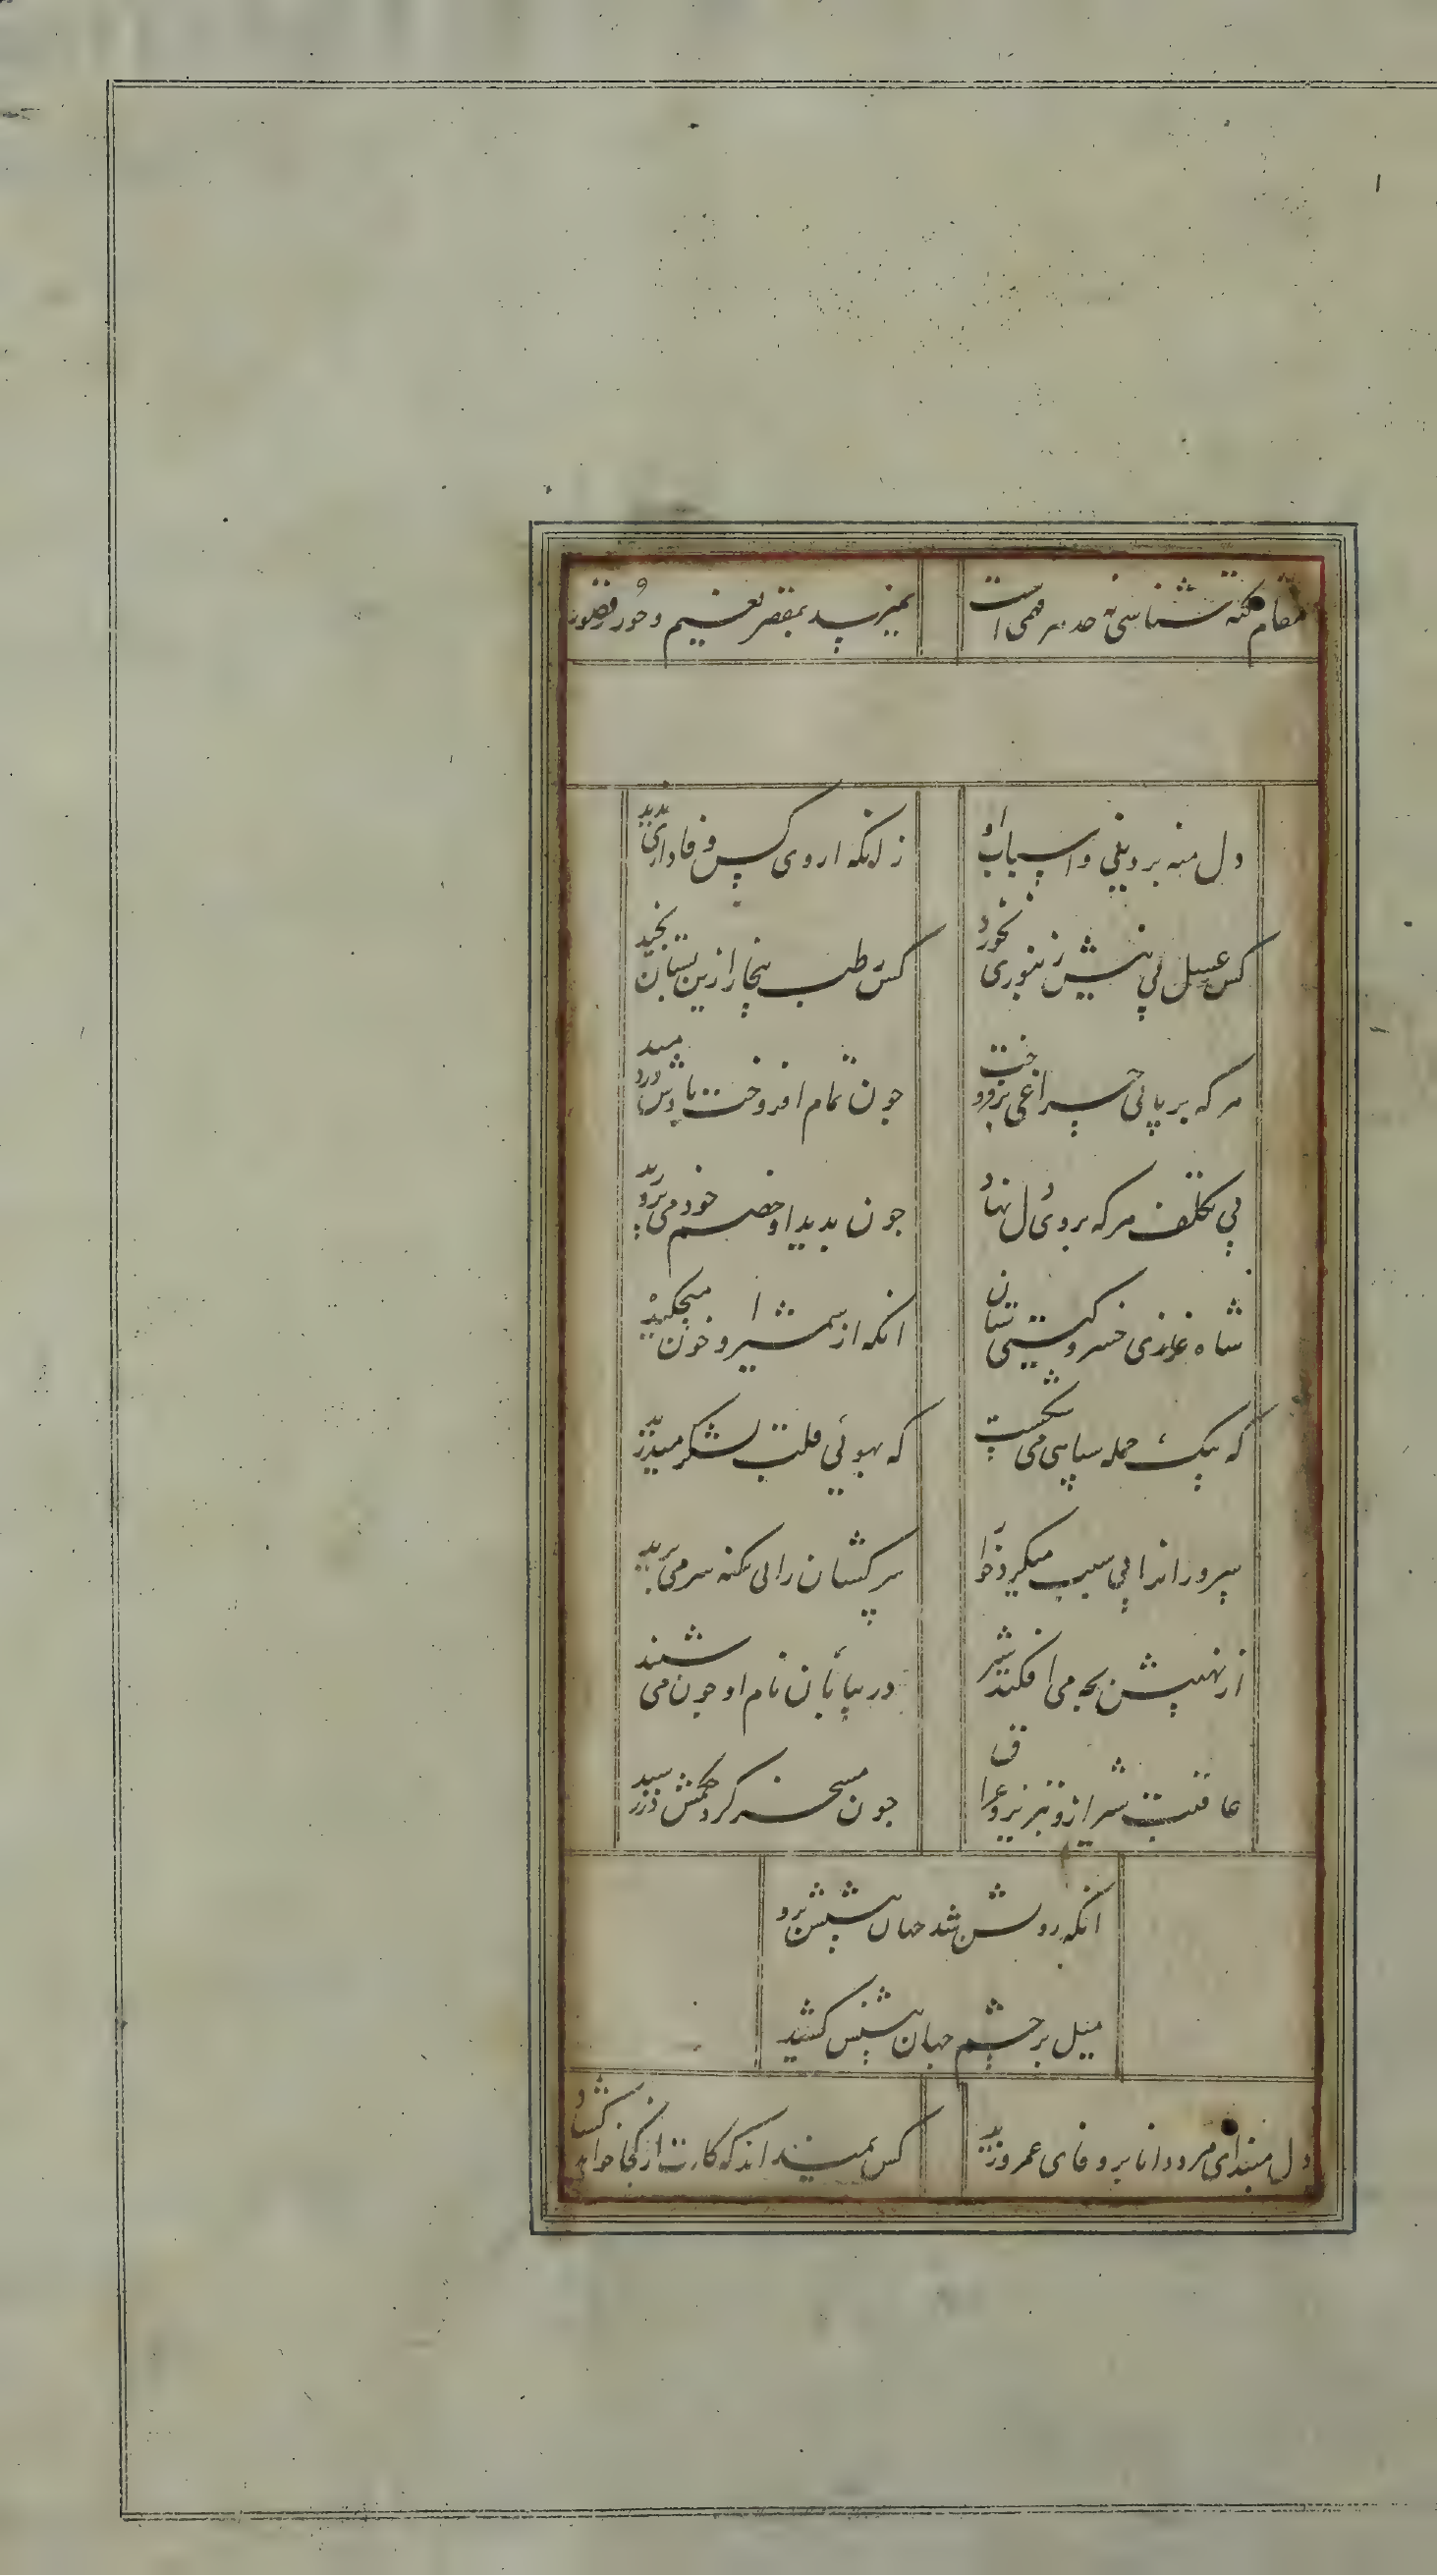 مقام نکته شناسی نه حد هر فهمی است
نمیرسد بمقصر نعیم و حور و قصور
دل منه بر دینی و اسباب او
زانکه از وی کس وفاداری ندید
کس عسل بی نیش زنبوری نخورد
کس رطب بیخار ازین بستان نچید
هر که بر پائی چراغی بر فروخت
چون تمام افروخت بادش در دمید
بی تکلف هر که بر وی دل نهاد
چون بدید او خصم خود می پرورید
شاه غازی خسرو گیتی ستان
انکه از شمشیر او خون میچکید
که بیک حمله سپاهی می شکست
که بهوئی قلب لشکر میدرید
سرورانرا بی سبب میکرد خوار
سرکشان را بی کنه سر می برید
از نهیبش بچه می افکند شیر
در بیابان نام او چون می شنید
عاقبت شیراز و تبریز و عراق
چون مسخر کرد حکمش در رسید
انکه روشن شد جهان بینش برو
میل بر چشم جهان بینش کشید
دل مبند ای مرد دانا بر وفای عمرو و زید
کس نمیداند که کارت از کجا خواهد کشاد